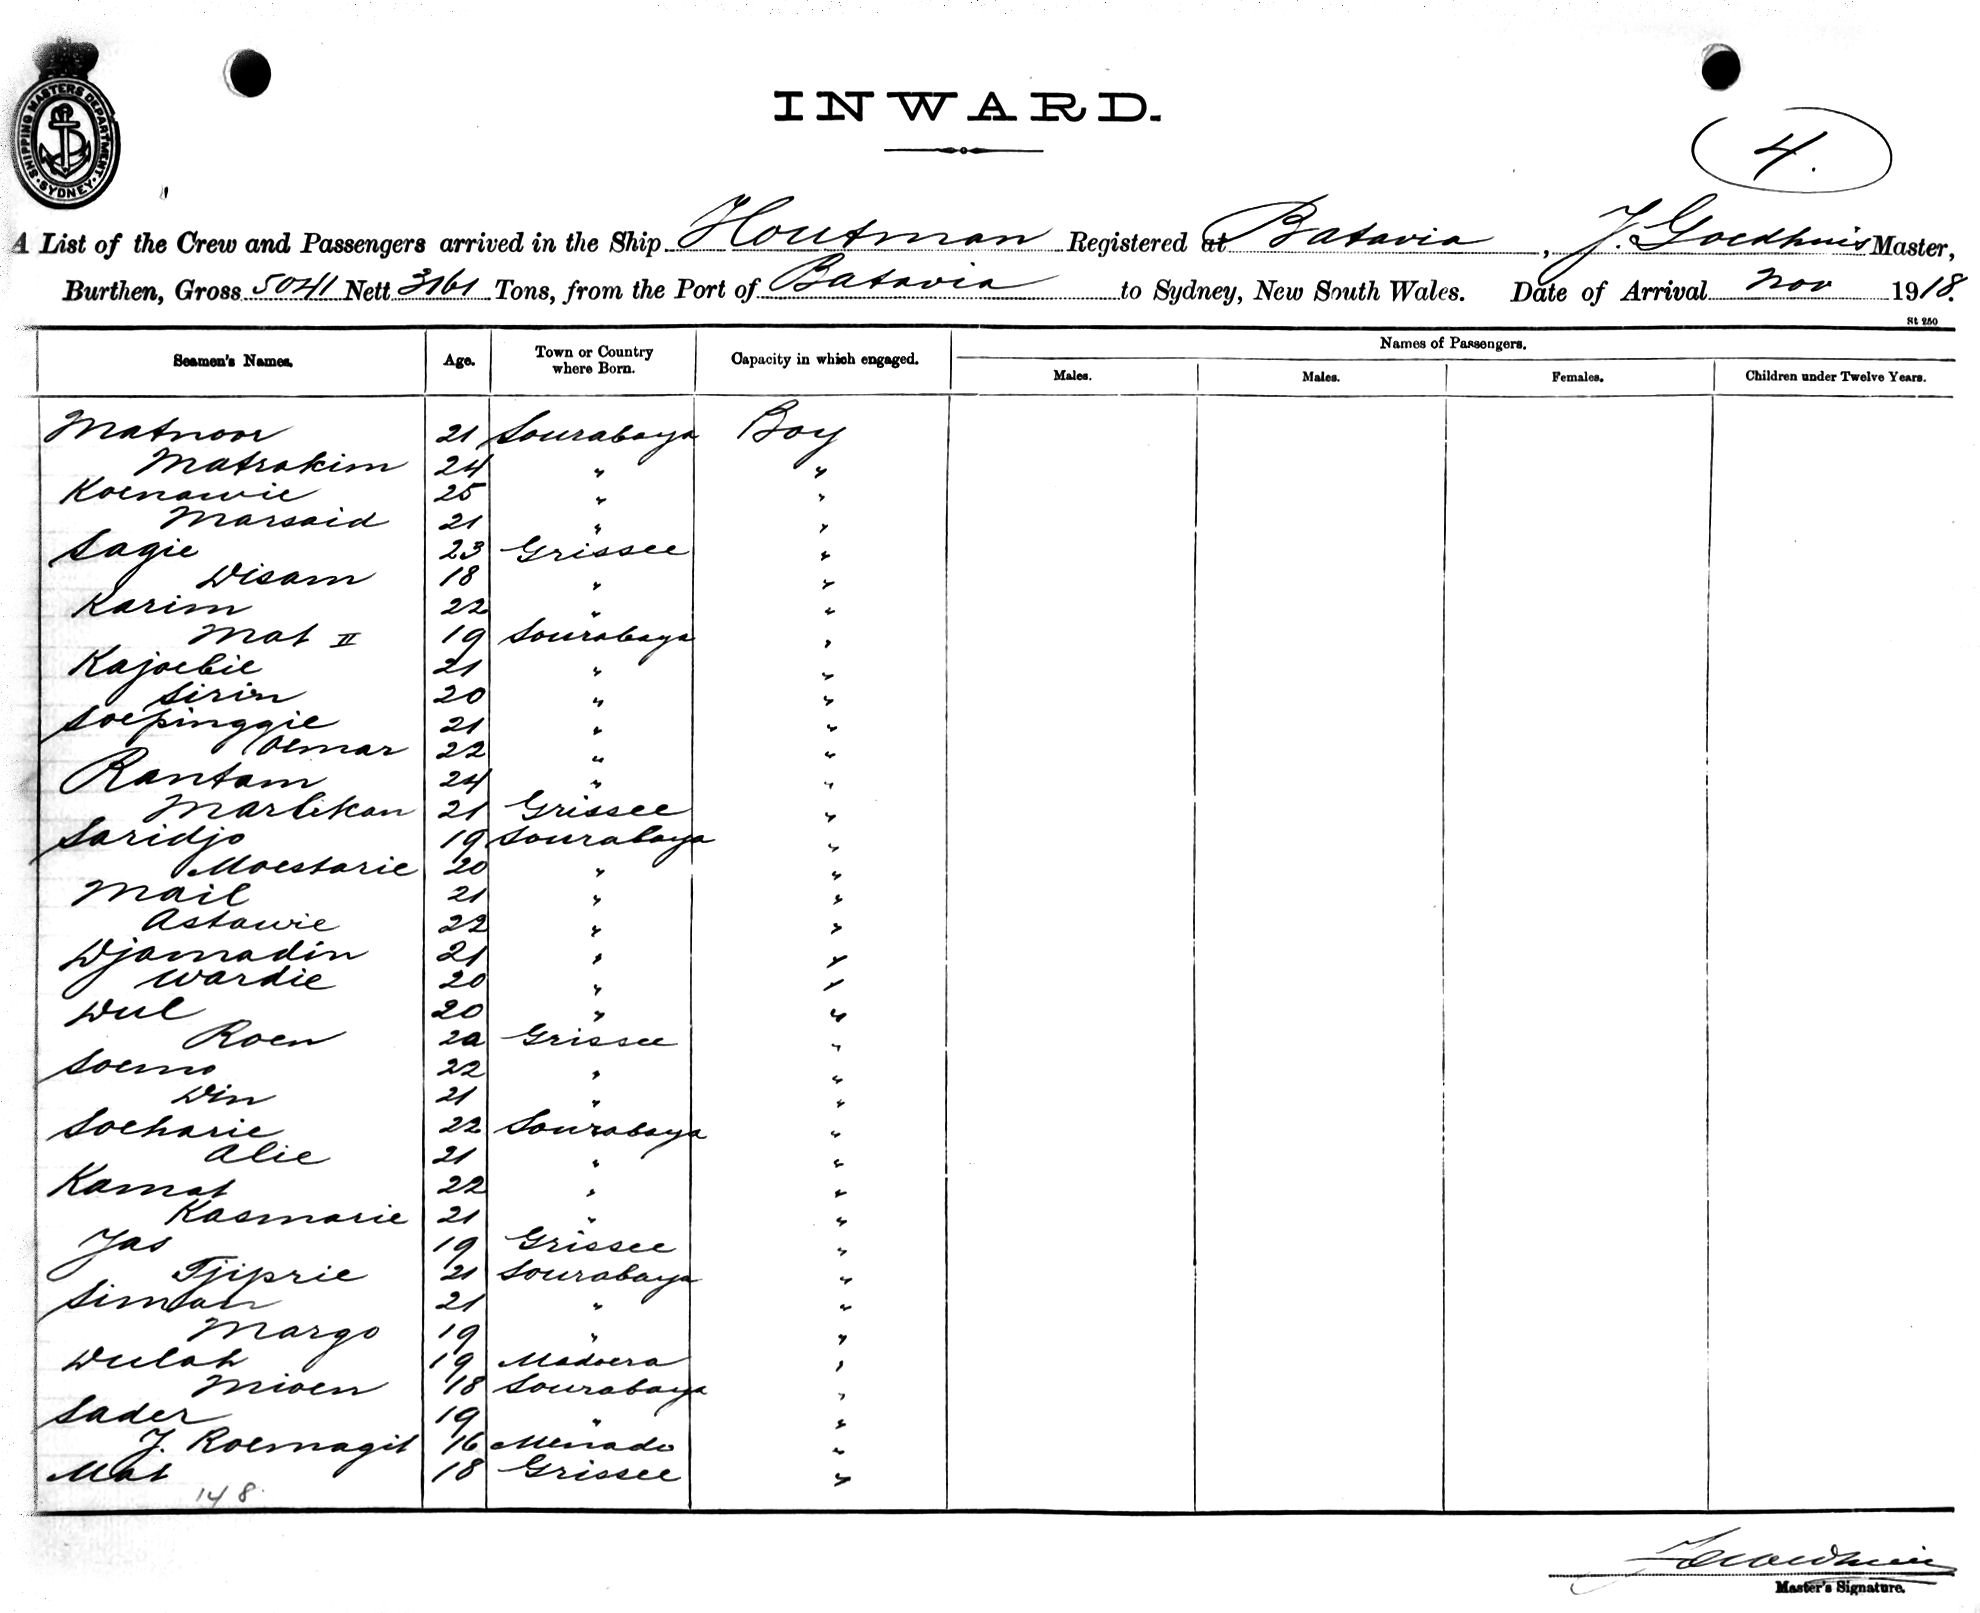 SHIPPING MASTERS DEPARTMENT. SYDNEY.
INWARD.
4.
A List of the Crew and Passengers arrived in the Ship Houtman Registered at Batavia, J. Goedhuis Master,
Burthen, Gross 5041 Nett 3161 Tons, from the Port of Batavia to Sydney, New South Wales. Date of Arrival Nov 1918.
St 250
Seamen's Names. Age. Town or Country where Born. Capacity in which engaged. Names of Passengers.
Males. Males. Females. Children under Twelve Years.
Matnoor 21 Sourabaya Boy
Matrakim 24 " "
Koenawie 25 " "
Marsaid 21 " "
Sagie 23 Grissee "
Disam 18 " "
Karim 22 " "
Mat II 19 Sourabaya "
Kajoebie 21 " "
Sirin 20 " "
Soepinggie 21 " "
Oemar 22 " "
Rantam 24 " "
Marlikan 21 Grissee "
Saridjo 19 Sourabaya "
Moestarie 20 " "
Mail 21 " "
Astawie 22 " "
Djamadin 21 " "
Wardie 20 " "
Dul 20 " "
Roen 20 Grissee "
Soemo 22 " "
Din 21 " "
Soeharie 22 Sourabaya "
Alie 21 " "
Kamat 22 " "
Kasmarie 21 " "
Jas 19 Grissee "
Tjiprie 21 Sourabaya "
Siman 21 " "
Margo 19 " "
Dulah 19 Madoera "
Mioen 18 Sourabaya "
Sader 19 " "
J. Roemagit 16 Menado "
Mat 18 Grissee "
148
Master's Signature.